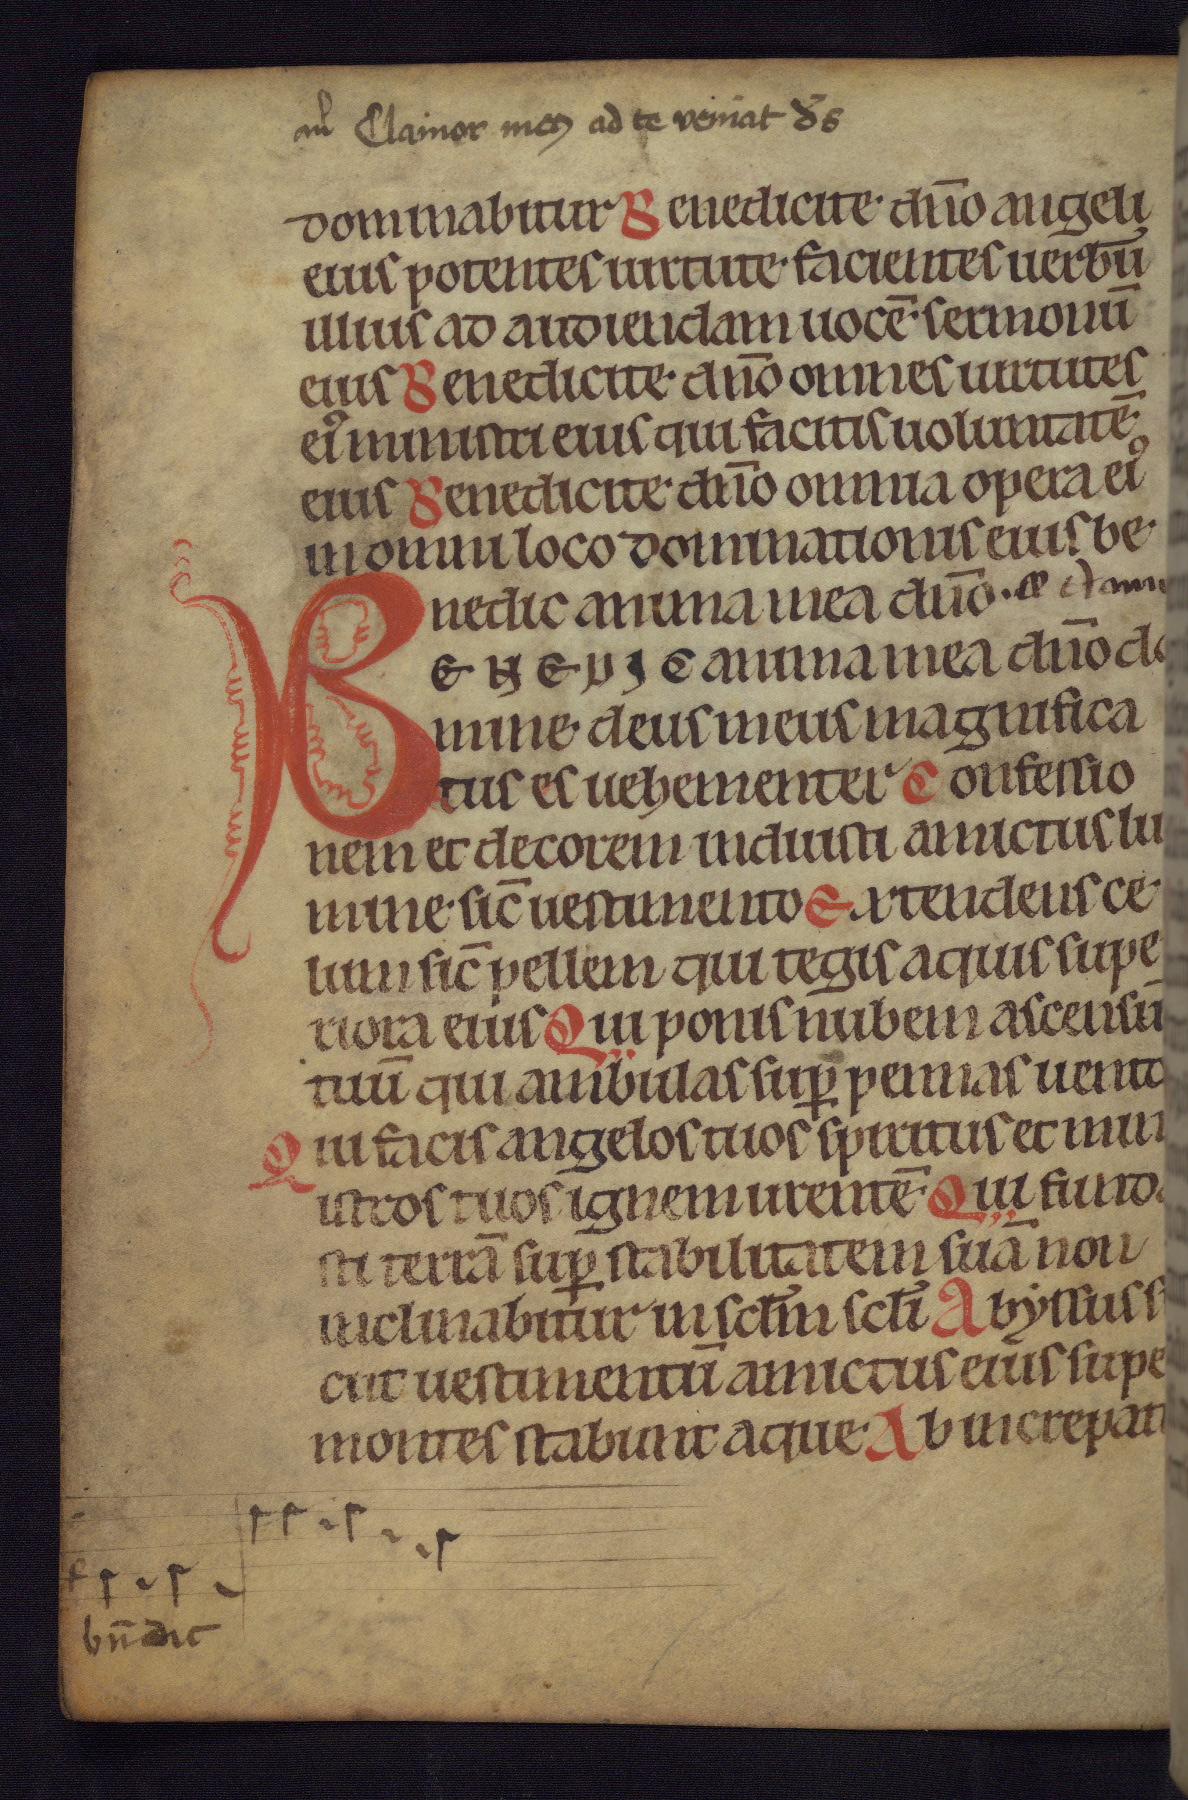 an̄ Clamor meꝰ ad te veniat d̄s
dominabitur Benedicite dn̄o angeli
eius potentes uirtute facientes uerbū
illius ad audiendam uocē sermonū
eius Benedicite dn̄o omnes uirtutes
eiꝰ ministri eius qui facitis uoluntatē
eius Benedicite dn̄o omnia opera eiꝰ
in omni loco dominationis eius be
nedic anima mea dn̄o.
BENEDIC anima mea dn̄o do
mine deus meus magnifica
tus es uehementer Confessio
nem et decorem induisti amictus lu
mine sic̄ uestimento Extendens ce
lum sic̄ pellem qui tegis aquis supe
riora eius Qui ponis nubem ascensū
tuū qui ambulas suꝑ pennas uento
Qui facis angelos tuos spiritus et min
istros tuos ignem urentē Qui funda
sti terrā suꝑ stabilitatem suā non
inclinabitur in sc̄lm sc̄li Abyssus si
cut uestimentū amictus eius supe
montes stabunt aque Ab increpati
bn̄dic